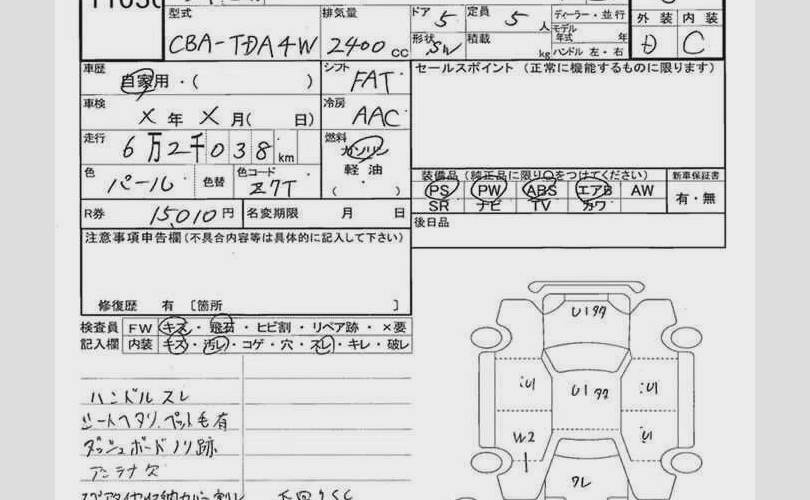 型式 排気量 ドア 5 定員 5 人 ディーラー・並行
モデル年式 年 外装 内装
CBA-TDA4W 2400 cc 形状 SW 積載 kg ハンドル 左・右 D C
車歴 自家用・( ) シフト FAT セールスポイント (正常に機能するものに限ります)
車検 X 年 X 月( 日) 冷房 AAC
走行 6万2千038 km 燃料 ガソリン
軽油
( )
色 パール 色替 色コード Z7T
装備品 (純正品に限り○をつけてください) 新車保証書
PS PW ABS エアB AW 有・無
SR ナビ TV カワ
R券 15,010円 名変期限 月 日
後日品
注意事項申告欄 (不具合内容等は具体的に記入して下さい)
修復歴 有 〔箇所 〕
検査員 FW キズ・飛石・ヒビ割・リペア跡・×要
記入欄 内装 キズ・汚レ・コゲ・穴・スレ・キレ・破レ
ハンドルスレ
シートヘタリ、ペット毛有
ダッシュボードノリ跡
アンテナ欠
U1
U1
U1
U1
W2